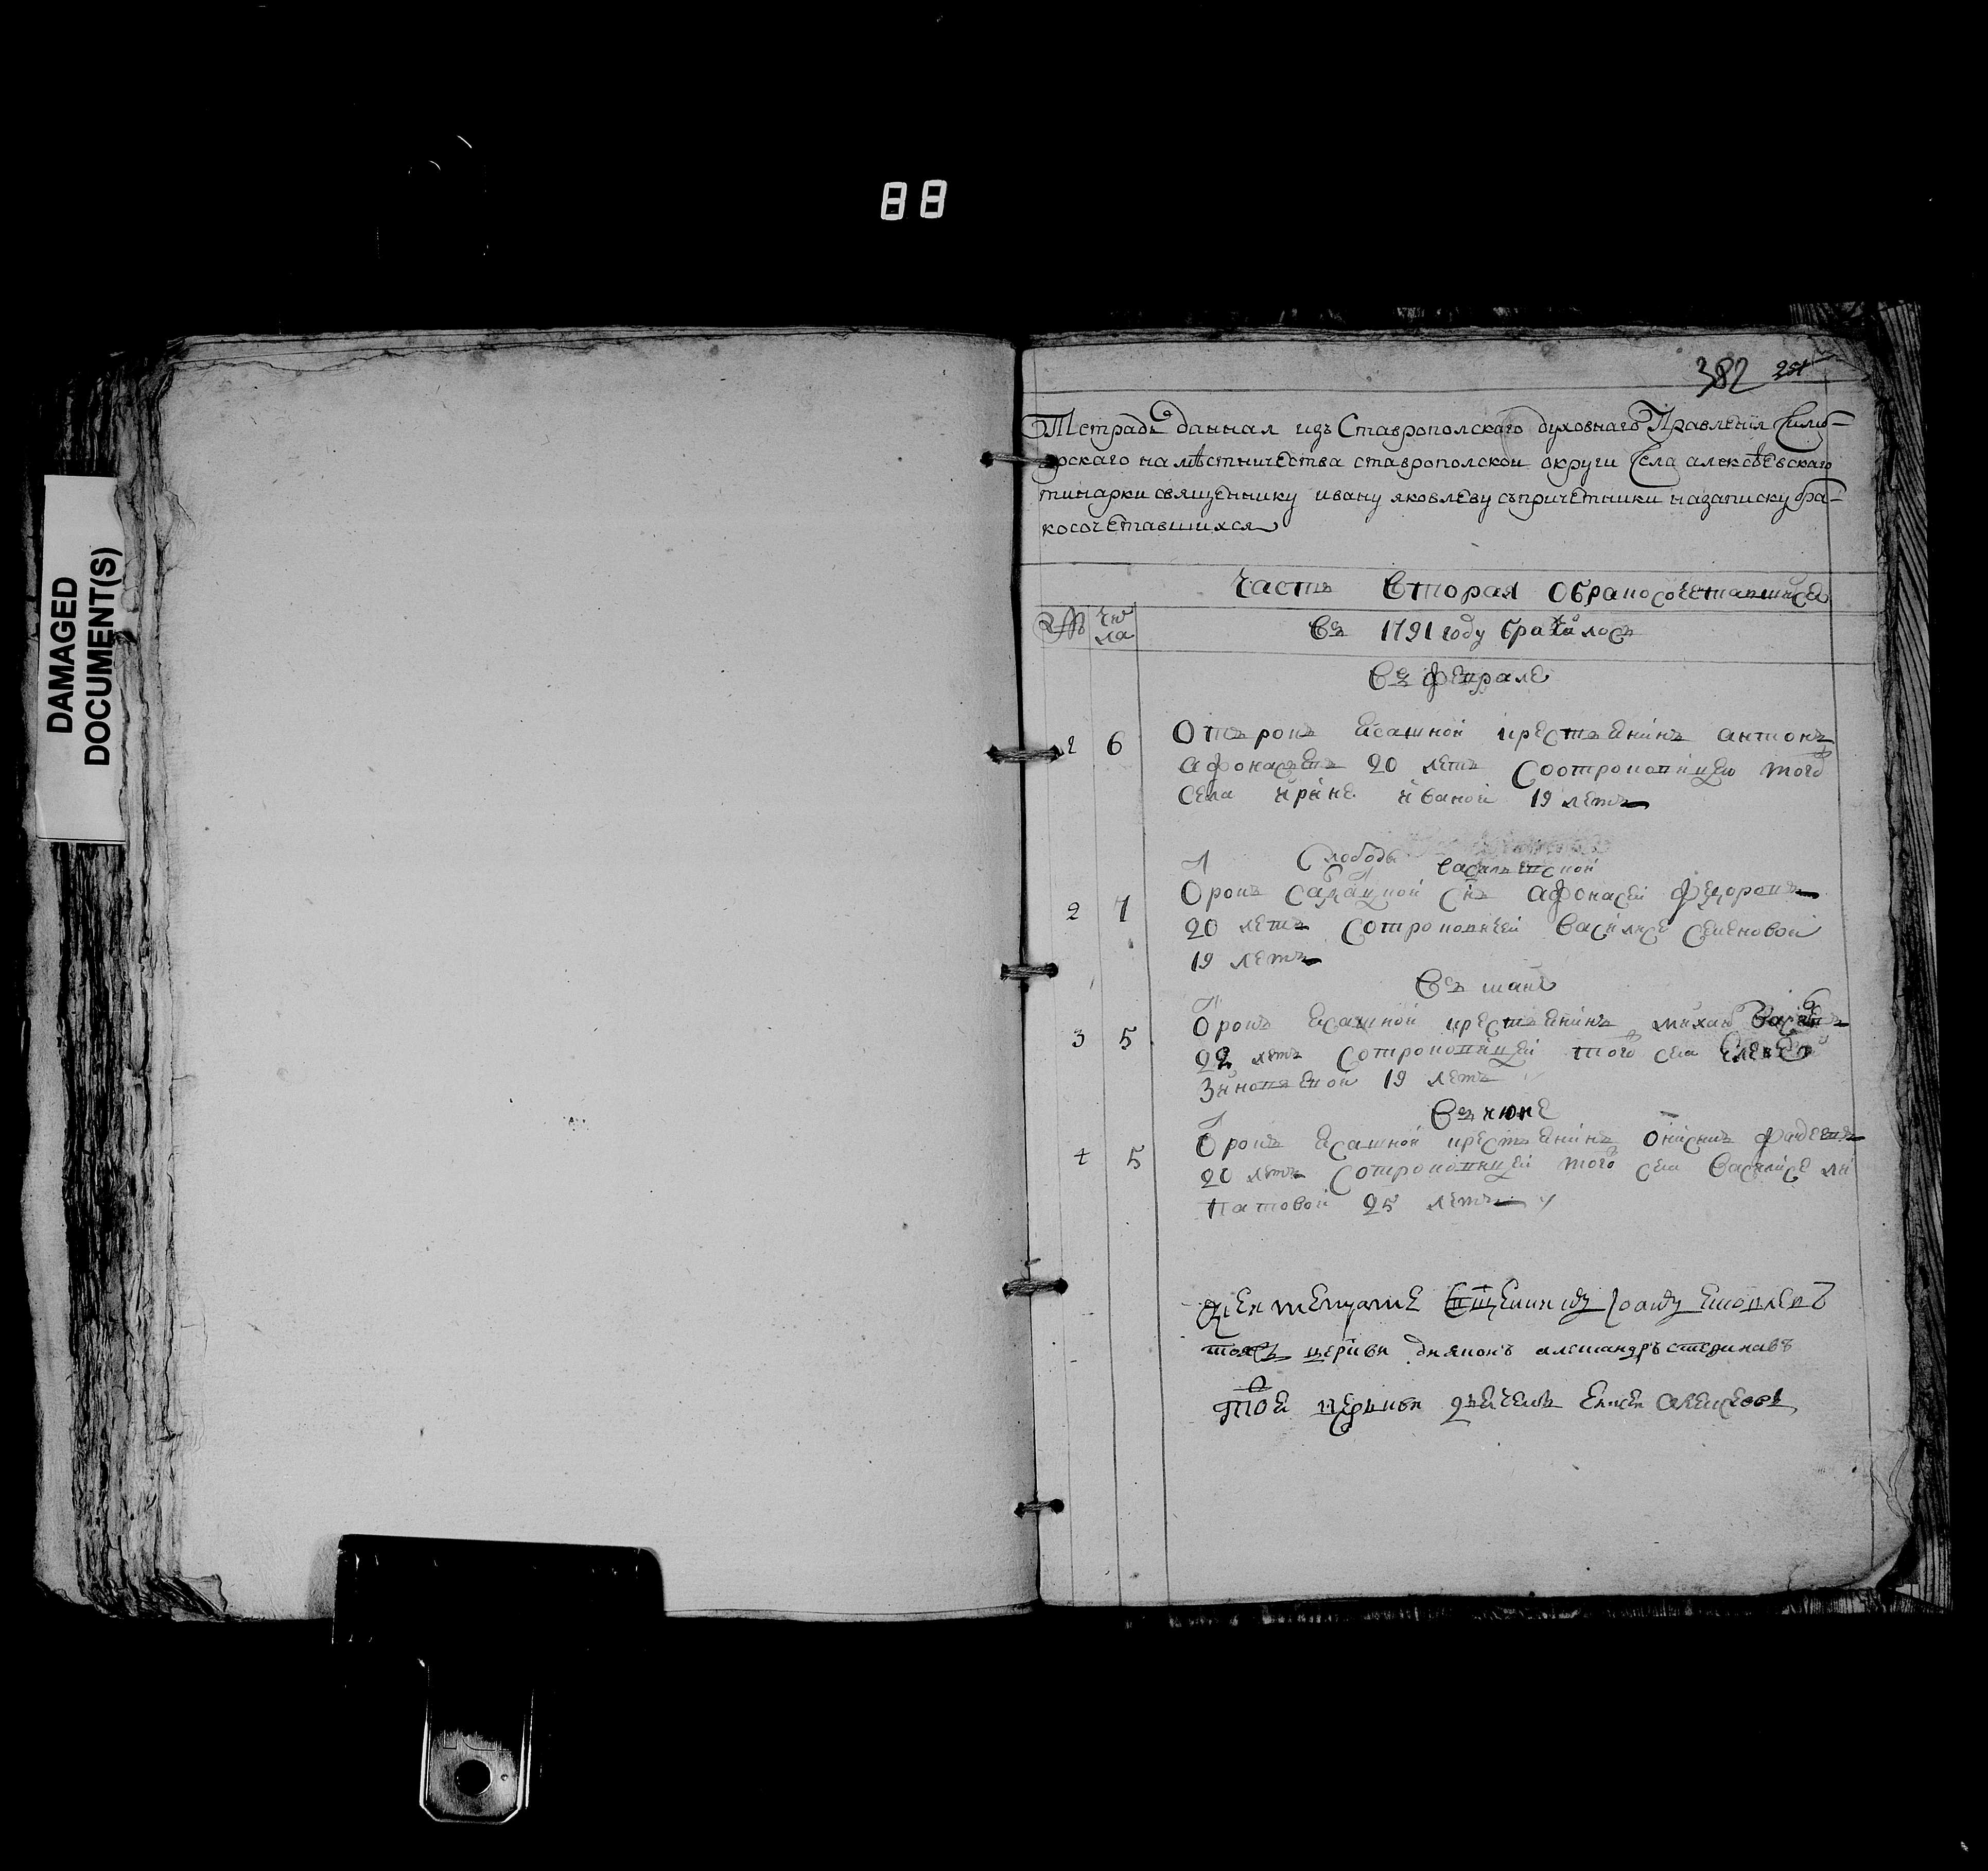 88
DAMAGED
DOCUMENT(S)
382
Тетрадь данная изъ Ставрополскаго духовнаго Правления Симб-
ирскаго намѣстничества ставрополской округи Села алексѣевскаго
священнику ивану яковлеву съпричетники назаписку бра-
косочетавшихся
Часть Вторая Обракосочетавшихся
№ Чис
ла
Въ 1791 году
Въ феврале
1 6 Отърокъ ясашной крестьянинъ антонъ
афонасьевъ 20 летъ Соотроковицею того
села ирине ивановой 19 летъ
Слободы васильевской
2 7 Отрокъ снъ афонасей федоровъ
20 летъ Сотроковицей василисе семеновой
19 летъ
Въ маие
3 5 Отрокъ ясашной крестьянинъ михаи
22 летъ Сотроковицей того села
Зиновьевой 19 летъ
Въ июне
4 5 Отрокъ ясашной крестьянинъ онисимъ фадеевъ
20 летъ Сотроковицей того села василисе ли
патовой 25 летъ
Сщенникъ Иоанъ
тояжъ церкви диякон александръ
Тоя церькви дьячекъ алексеевъ